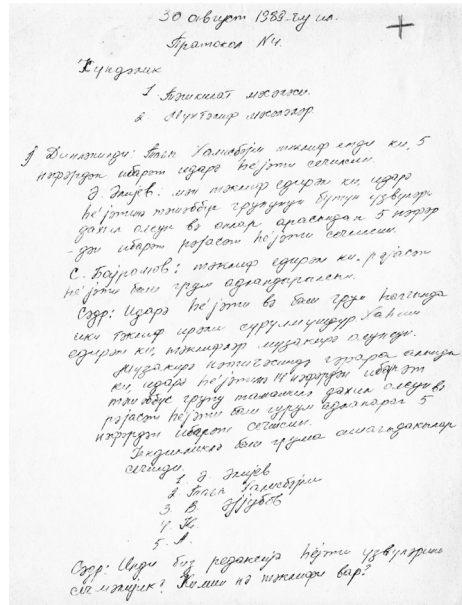 30 август 1988-ҹу ил.
Протокол №4.
Күндәлик
1. Тәшкилат мәсәләси.
2. Мүхтәлиф мәсәләләр.
1) Динләнилди: Халисбәјли тәклиф етди ки, 5
нәфәрдән ибарәт идарә һеј'әти сечилсин.
Ә. Әлијев: мән тәклиф едирәм ки, идарә
һеј'әтинә тәшәббүс групунун бүтүн үзвләри
дахил олсун вә онлар арасындан 5 нәфәр
-дән ибарәт рәјасәт һеј'әти сечилсин.
С. Бајрамов: тәклиф едирәм ки, рәјасәт
һеј'әти баш груп адландырылсын.
Сәдр: Идарә һеј'әти вә баш груп һаггында
ики тәклиф ирәли сүрүлмүшдүр. Хаһиш
едирәм ки, тәклифләр музакирә олунсун.
Музакирә нәтиҹәсиндә гәрара алынды
ки, идарә һеј'әтинә 14 нәфәрдән ибарәт
тәшәббүс групу тамамилә дахил олсун вә
рәјасәт һеј'әти баш груп адланараг 5
нәфәрдән ибарәт сечилсин.
баш група ашағыдакылар
сечилди:
1. Ә. Әлијев
2. Халисбәјли
3. В. Әјјубов
4. Н.
5. А.
Сәдр: Инди биз редаксија һеј'әти үзвләрини
сечмәлијик. Кимин нә тәклифи вар?